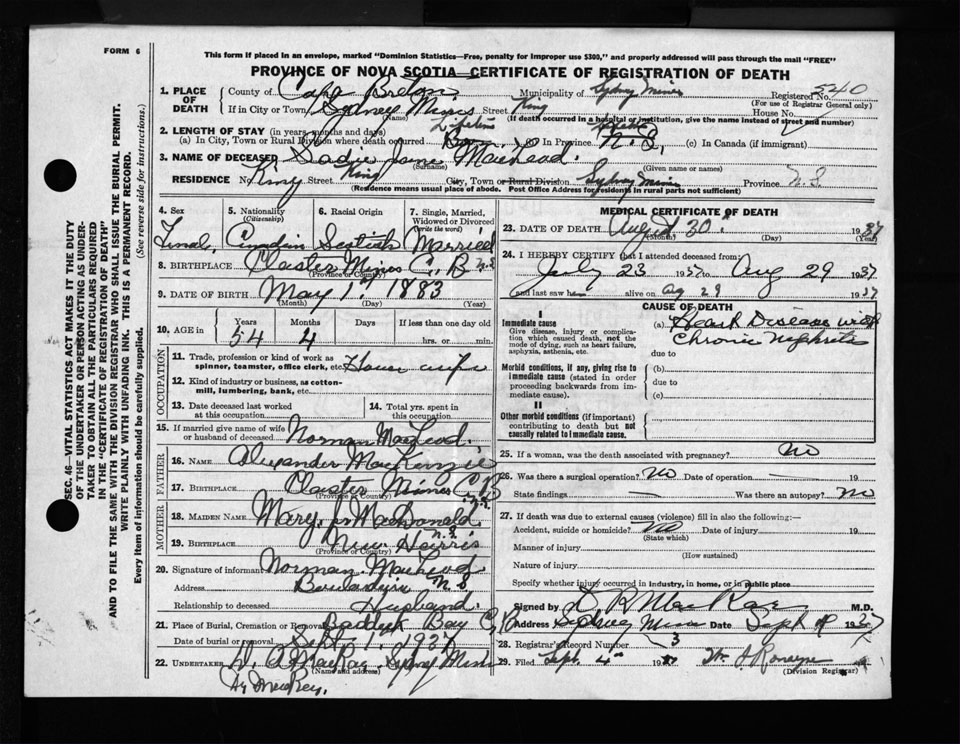 FORM 6
This form if placed in an envelope, marked "Dominion Statistics—Free, penalty for improper use $300," and properly addressed will pass through the mail "FREE"
PROVINCE OF NOVA SCOTIA—CERTIFICATE OF REGISTRATION OF DEATH
1. PLACE OF DEATH
County of Cape Breton Municipality of Sydney Mines Registered No. 540
(For use of Registrar General only)
If in City or Town Sydney Mines Street King House No.
(Name) (If death occurred in a hospital or institution, give the name instead of street and number)
2. LENGTH OF STAY (in years, months and days)
(a) In City, Town or Rural Division where death occurred (b) In Province N.S. (c) In Canada (if immigrant)
3. NAME OF DECEASED Sadie Jane MacLeod
(Surname) (Given name or names)
RESIDENCE No. King Street King City, Town or Rural Division Sydney Mines Province N.S.
(Residence means usual place of abode. Post Office Address for residents in rural parts not sufficient)
4. Sex
5. Nationality (Citizenship)
6. Racial Origin
7. Single, Married, Widowed or Divorced (write the word)
Scottish Married
8. BIRTHPLACE Mines C.B. N.S.
(Province or Country)
9. DATE OF BIRTH May 1st 1883
(Month) (Day) (Year)
10. AGE in Years Months Days If less than one day old
54 4 hrs. or min.
OCCUPATION
11. Trade, profession or kind of work as spinner, teamster, office clerk, etc. House wife
12. Kind of industry or business, as cotton-mill, lumbering, bank, etc.
13. Date deceased last worked at this occupation
14. Total yrs. spent in this occupation
15. If married give name of wife or husband of deceased Norman MacLeod
FATHER
16. NAME Alexander MacKenzie
17. BIRTHPLACE Mines C.B. N.S.
(Province or Country)
MOTHER
18. MAIDEN NAME Mary J. MacDonald
19. BIRTHPLACE New Harris N.S.
(Province or Country)
20. Signature of informant Norman MacLeod
Address N.S.
Relationship to deceased Husband.
21. Place of Burial, Cremation or Removal Baddeck Bay C.B.
Date of burial or removal Sept 1st 1937
22. UNDERTAKER Sydney Mines
(Name and address)
MEDICAL CERTIFICATE OF DEATH
23. DATE OF DEATH August 30 1937
(Month) (Day) (Year)
24. I HEREBY CERTIFY that I attended deceased from:
July 23 1937 to Aug 29 1937
and last saw h alive on Ag 29 1937
CAUSE OF DEATH
I
Immediate cause
Give disease, injury or complication which caused death, not the mode of dying, such as heart failure, asphyxia, asthenia, etc.
(a) Heart Disease with Chronic Nephritis
due to
Morbid conditions, if any, giving rise to immediate cause (stated in order proceeding backwards from immediate cause).
(b)
due to
(c)
II
Other morbid conditions (if important) contributing to death but not causally related to immediate cause.
25. If a woman, was the death associated with pregnancy? No
26. Was there a surgical operation? No Date of operation 19
State findings — Was there an autopsy? No
27. If death was due to external causes (violence) fill in also the following:—
Accident, suicide or homicide? No Date of injury 19
(State which)
Manner of injury
(How sustained)
Nature of injury
Specify whether injury occurred in industry, in home, or in public place
Signed by D. R. MacRae M.D.
Address Sydney Mines Date Sept 1937
28. Registrar's Record Number 3
29. Filed Sept. 4th 1937
(Division Registrar)
SEC. 46—VITAL STATISTICS ACT MAKES IT THE DUTY
OF THE UNDERTAKER OR PERSON ACTING AS UNDER-
TAKER TO OBTAIN ALL THE PARTICULARS REQUIRED
IN THE "CERTIFICATE OF REGISTRATION OF DEATH"
AND TO FILE THE SAME WITH THE DIVISION REGISTRAR WHO SHALL ISSUE THE BURIAL PERMIT.
WRITE PLAINLY WITH UNFADING INK. THIS IS A PERMANENT RECORD.
Every item of information should be carefully supplied. (See reverse side for instructions.)